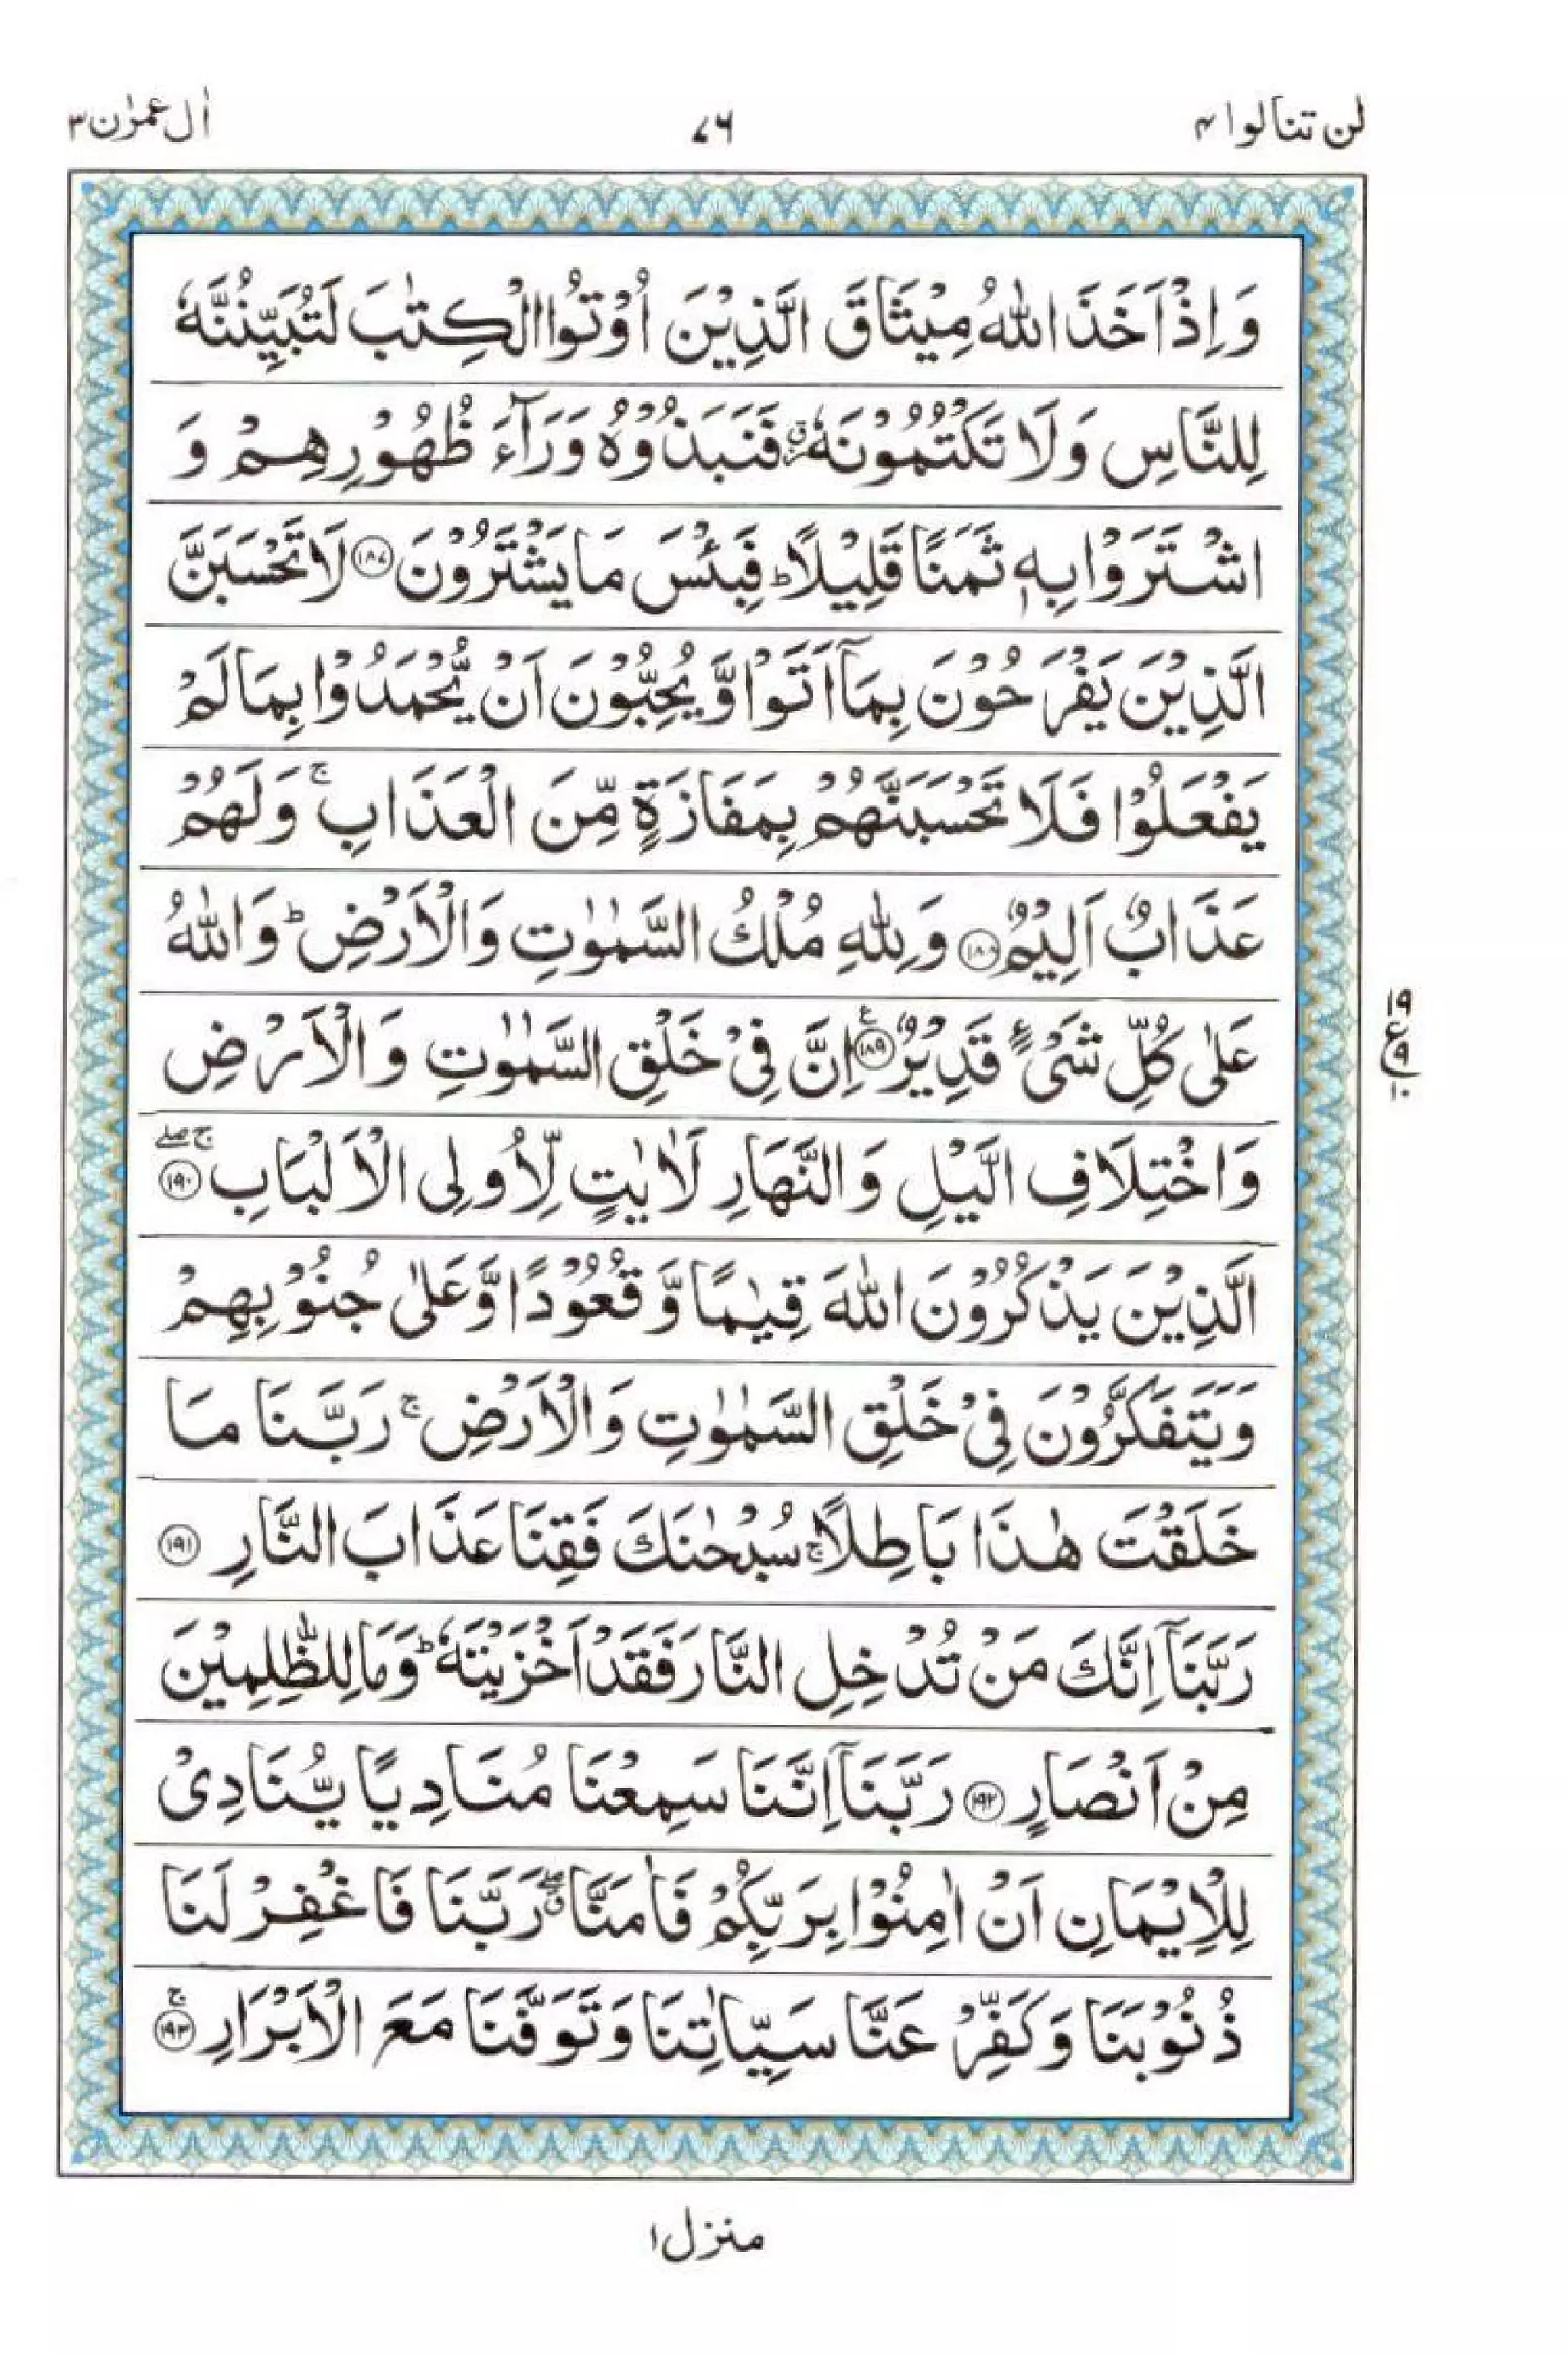 لن تنالوا ۴ ۷۶ اٰل عمرٰن ۳
وَاِذْ اَخَذَ اللّٰهُ مِيْثَاقَ الَّذِيْنَ اُوْتُوا الْكِتٰبَ لَتُبَيِّنُنَّهٗ
لِلنَّاسِ وَلَا تَكْتُمُوْنَهٗ ؗ فَنَبَذُوْهُ وَرَآءَ ظُهُوْرِهِمْ وَ
اشْتَرَوْا بِهٖ ثَمَنًا قَلِيْلًا ؕ فَبِئْسَ مَا يَشْتَرُوْنَ ۝۱۸۷ لَا تَحْسَبَنَّ
الَّذِيْنَ يَفْرَحُوْنَ بِمَاۤ اَتَوْا وَّيُحِبُّوْنَ اَنْ يُّحْمَدُوْا بِمَا لَمْ
يَفْعَلُوْا فَلَا تَحْسَبَنَّهُمْ بِمَفَازَةٍ مِّنَ الْعَذَابِ ۚ وَلَهُمْ
عَذَابٌ اَلِيْمٌ ۝۱۸۸ وَلِلّٰهِ مُلْكُ السَّمٰوٰتِ وَالْاَرْضِ ؕ وَاللّٰهُ
عَلٰى كُلِّ شَىْءٍ قَدِيْرٌ ۝۱۸۹ ع اِنَّ فِىْ خَلْقِ السَّمٰوٰتِ وَالْاَرْضِ
۱۹ ع ۹ ۱۰
وَاخْتِلَافِ الَّيْلِ وَالنَّهَارِ لَاٰيٰتٍ لِّاُولِى الْاَلْبَابِ ۝۱۹۰ ۚۖ
الَّذِيْنَ يَذْكُرُوْنَ اللّٰهَ قِيٰمًا وَّقُعُوْدًا وَّعَلٰى جُنُوْبِهِمْ
وَيَتَفَكَّرُوْنَ فِىْ خَلْقِ السَّمٰوٰتِ وَالْاَرْضِ ۚ رَبَّنَا مَا
خَلَقْتَ هٰذَا بَاطِلًا ۚ سُبْحٰنَكَ فَقِنَا عَذَابَ النَّارِ ۝۱۹۱
رَبَّنَاۤ اِنَّكَ مَنْ تُدْخِلِ النَّارَ فَقَدْ اَخْزَيْتَهٗ ؕ وَمَا لِلظّٰلِمِيْنَ
مِنْ اَنْصَارٍ ۝۱۹۲ رَبَّنَاۤ اِنَّنَا سَمِعْنَا مُنَادِيًا يُّنَادِىْ
لِلْاِيْمَانِ اَنْ اٰمِنُوْا بِرَبِّكُمْ فَاٰمَنَّا ۖۗ رَبَّنَا فَاغْفِرْ لَنَا
ذُنُوْبَنَا وَكَفِّرْ عَنَّا سَيِّاٰتِنَا وَتَوَفَّنَا مَعَ الْاَبْرَارِ ۝۱۹۳ ۚ
منزل ۱